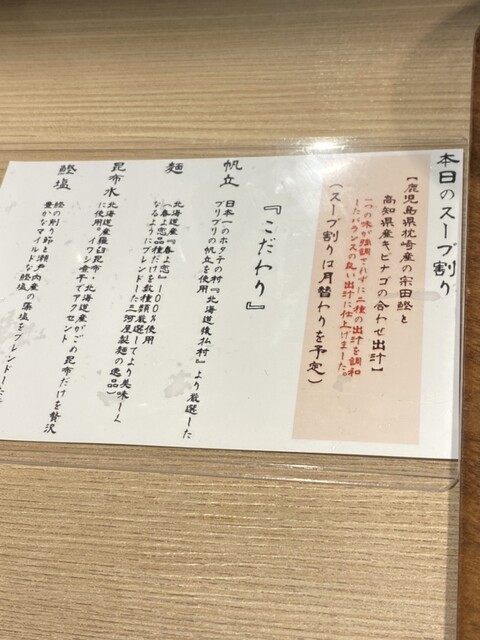 本日のスープ割り
【鹿児島県枕崎産の宗田鰹と
高知県産キビナゴの合わせ出汁】
一つの味が強調されずに二種の出汁を調和
したバランスの良い出汁に仕上げました。
(スープ割りは月替わりを予定)
『こだわり』
帆立
日本一のホタテの村『北海道猿払村』より厳選した
プリプリの帆立を使用
麺
北海道産『春よ恋』100%使用
(春よ恋品種だけを数種類厳選してより美味しく
なるようにブレンドした三河屋製麺の逸品)
昆布水
北海道産羅臼昆布・北海道産がごめ昆布だけを贅沢
に使用。イワシ煮干でアクセント
鰹塩
鰹の削り節と瀬戸内産の藻塩をブレンドした
豊かなマイルドな鰹塩